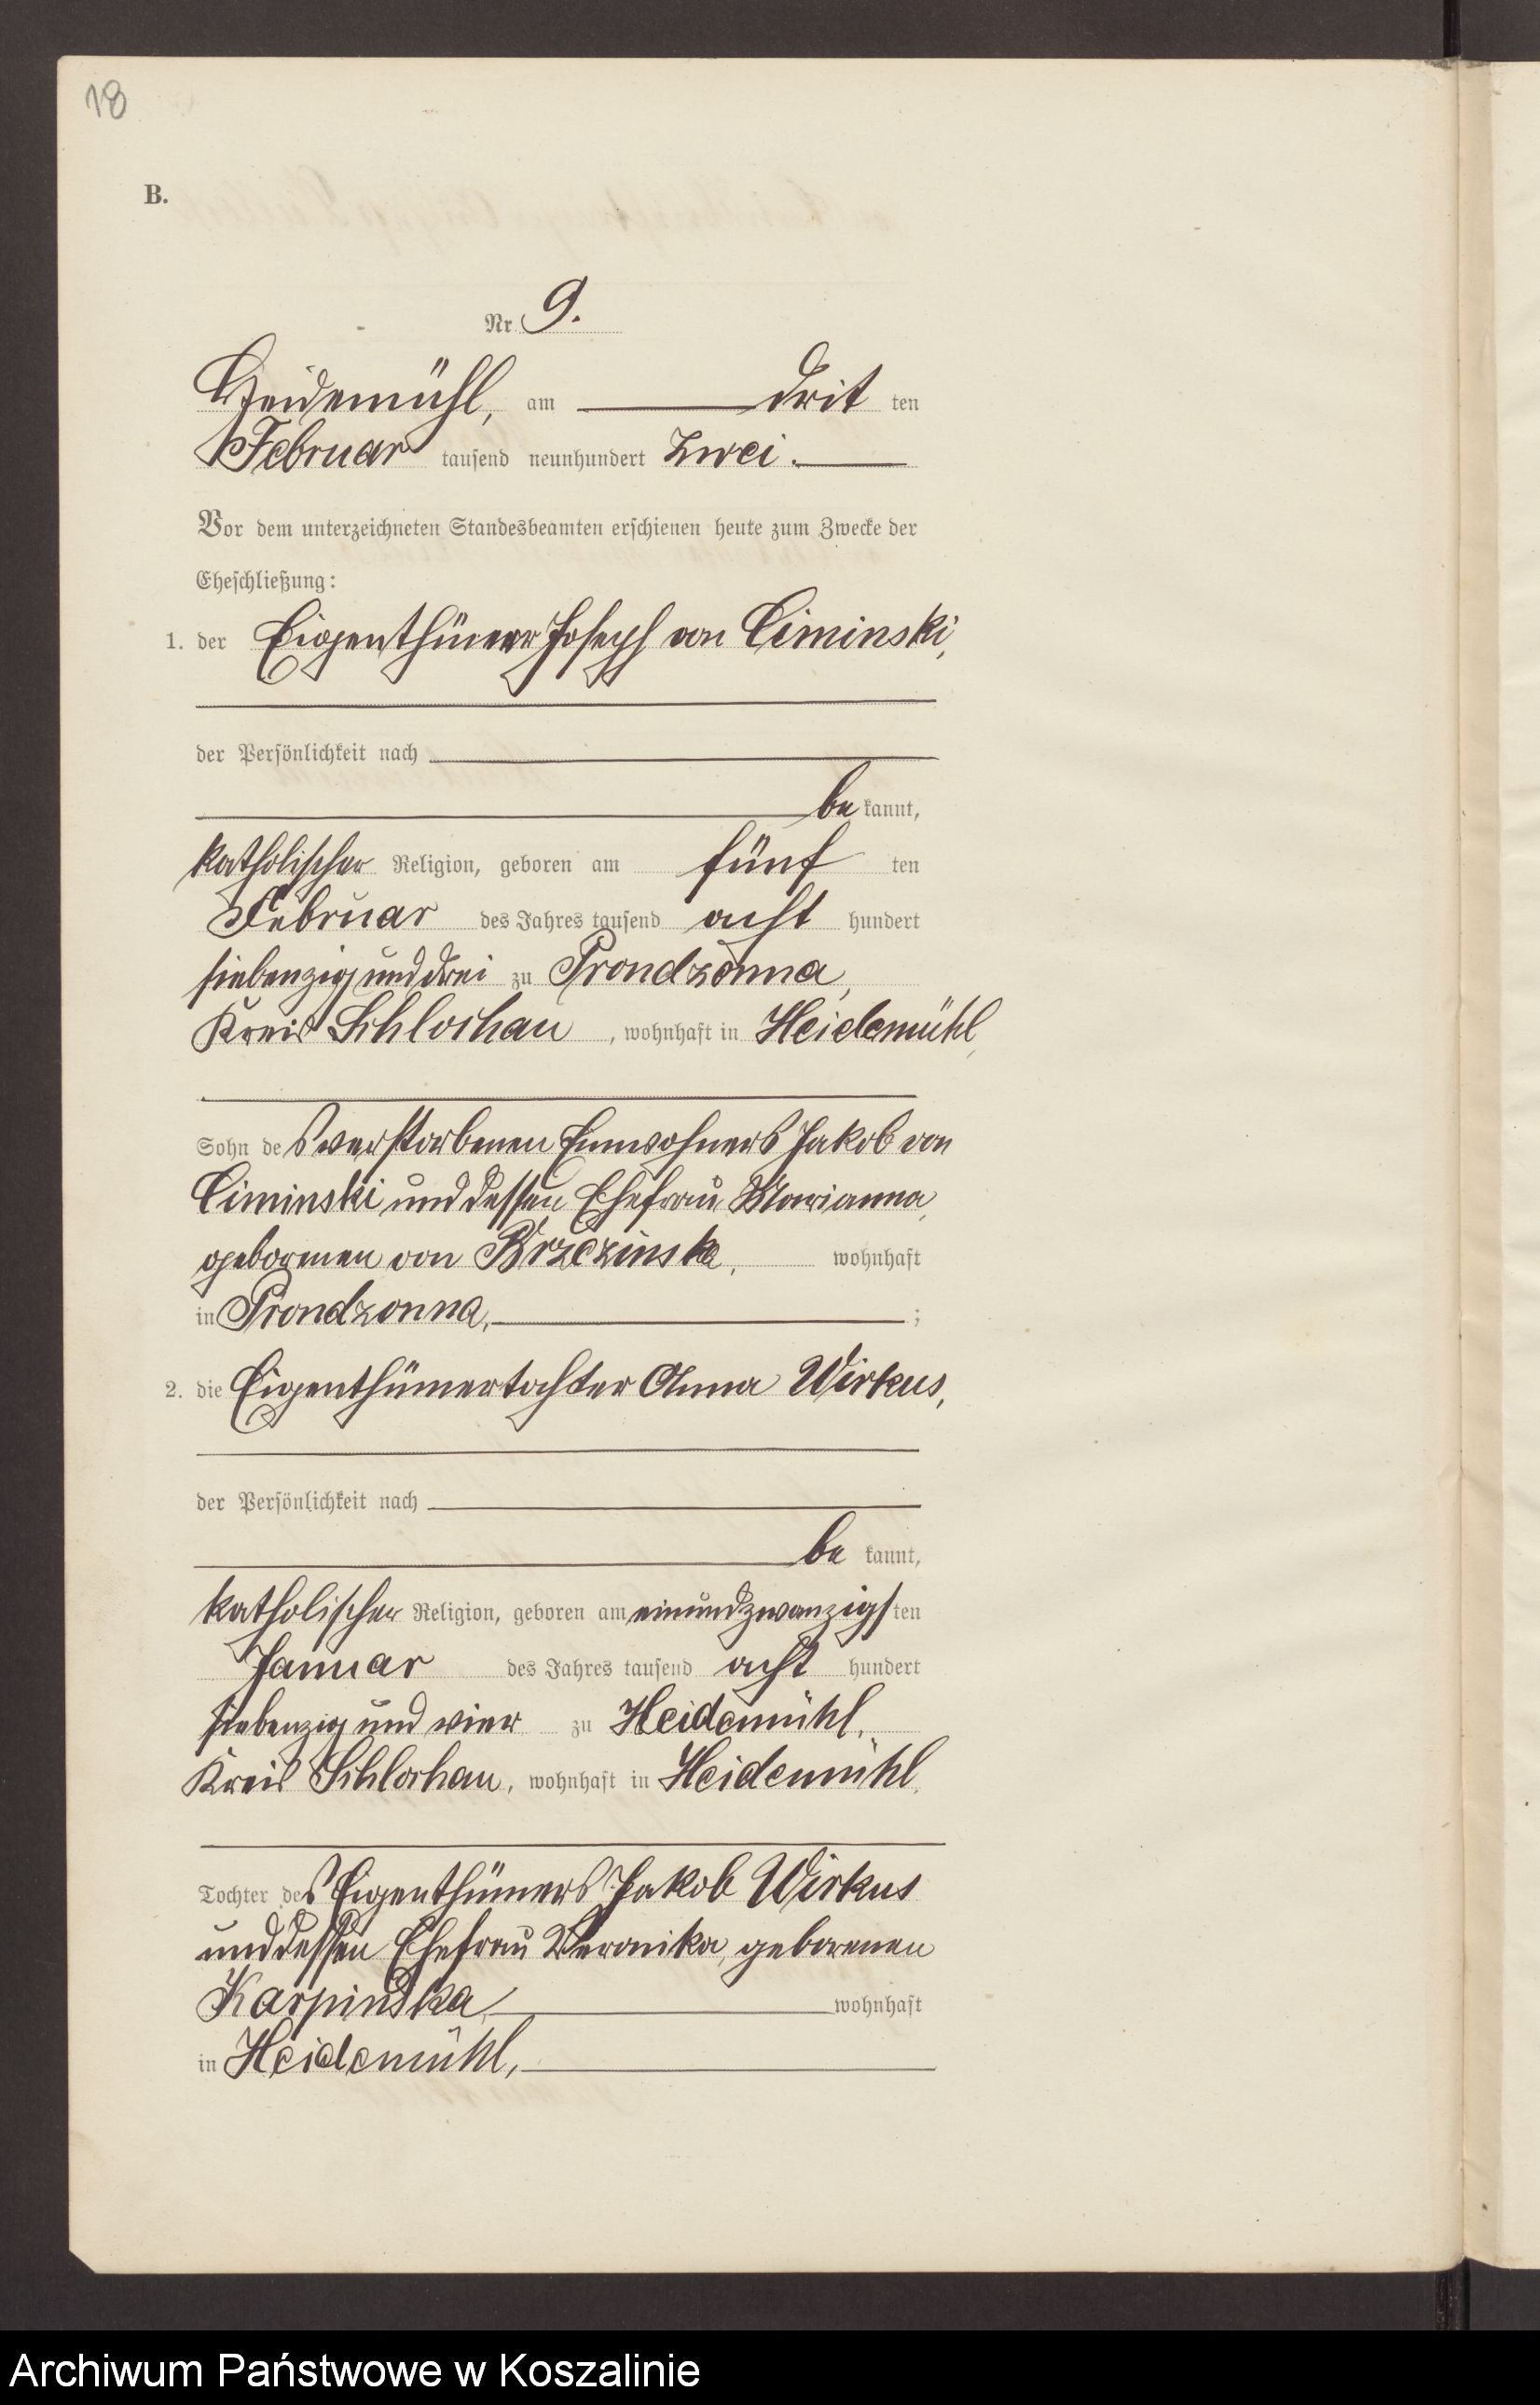 18
B.
Nr. 9.
Heidemühl, am drit ten
Februar tausend neunhundert zwei.
Vor dem unterzeichneten Standesbeamten erschienen heute zum Zwecke der
Eheschließung:
1. der Eigenthümer Joseph von Ciminski,
der Persönlichkeit nach
be kannt,
katholischer Religion, geboren am fünf ten
Februar des Jahres tausend acht hundert
siebenzig und drei zu Prondzonna,
Kreis Schlochau, wohnhaft in Heidemühl,
Sohn des verstorbenen Einwohners Jakob von
Ciminski und dessen Ehefrau Marianna,
geborenen von Brzezinska, wohnhaft
in Prondzonna, ;
2. die Eigenthümertochter Anna Wirkus,
der Persönlichkeit nach
be kannt,
katholischer Religion, geboren am einundzwanzigsten
Januar des Jahres tausend acht hundert
siebenzig und vier zu Heidemühl,
Kreis Schlochau, wohnhaft in Heidemühl,
Tochter des Eigenthümers Jakob Wirkus
und dessen Ehefrau Veronika, geborenen
Karpinska, wohnhaft
in Heidemühl,
Archiwum Państwowe w Koszalinie